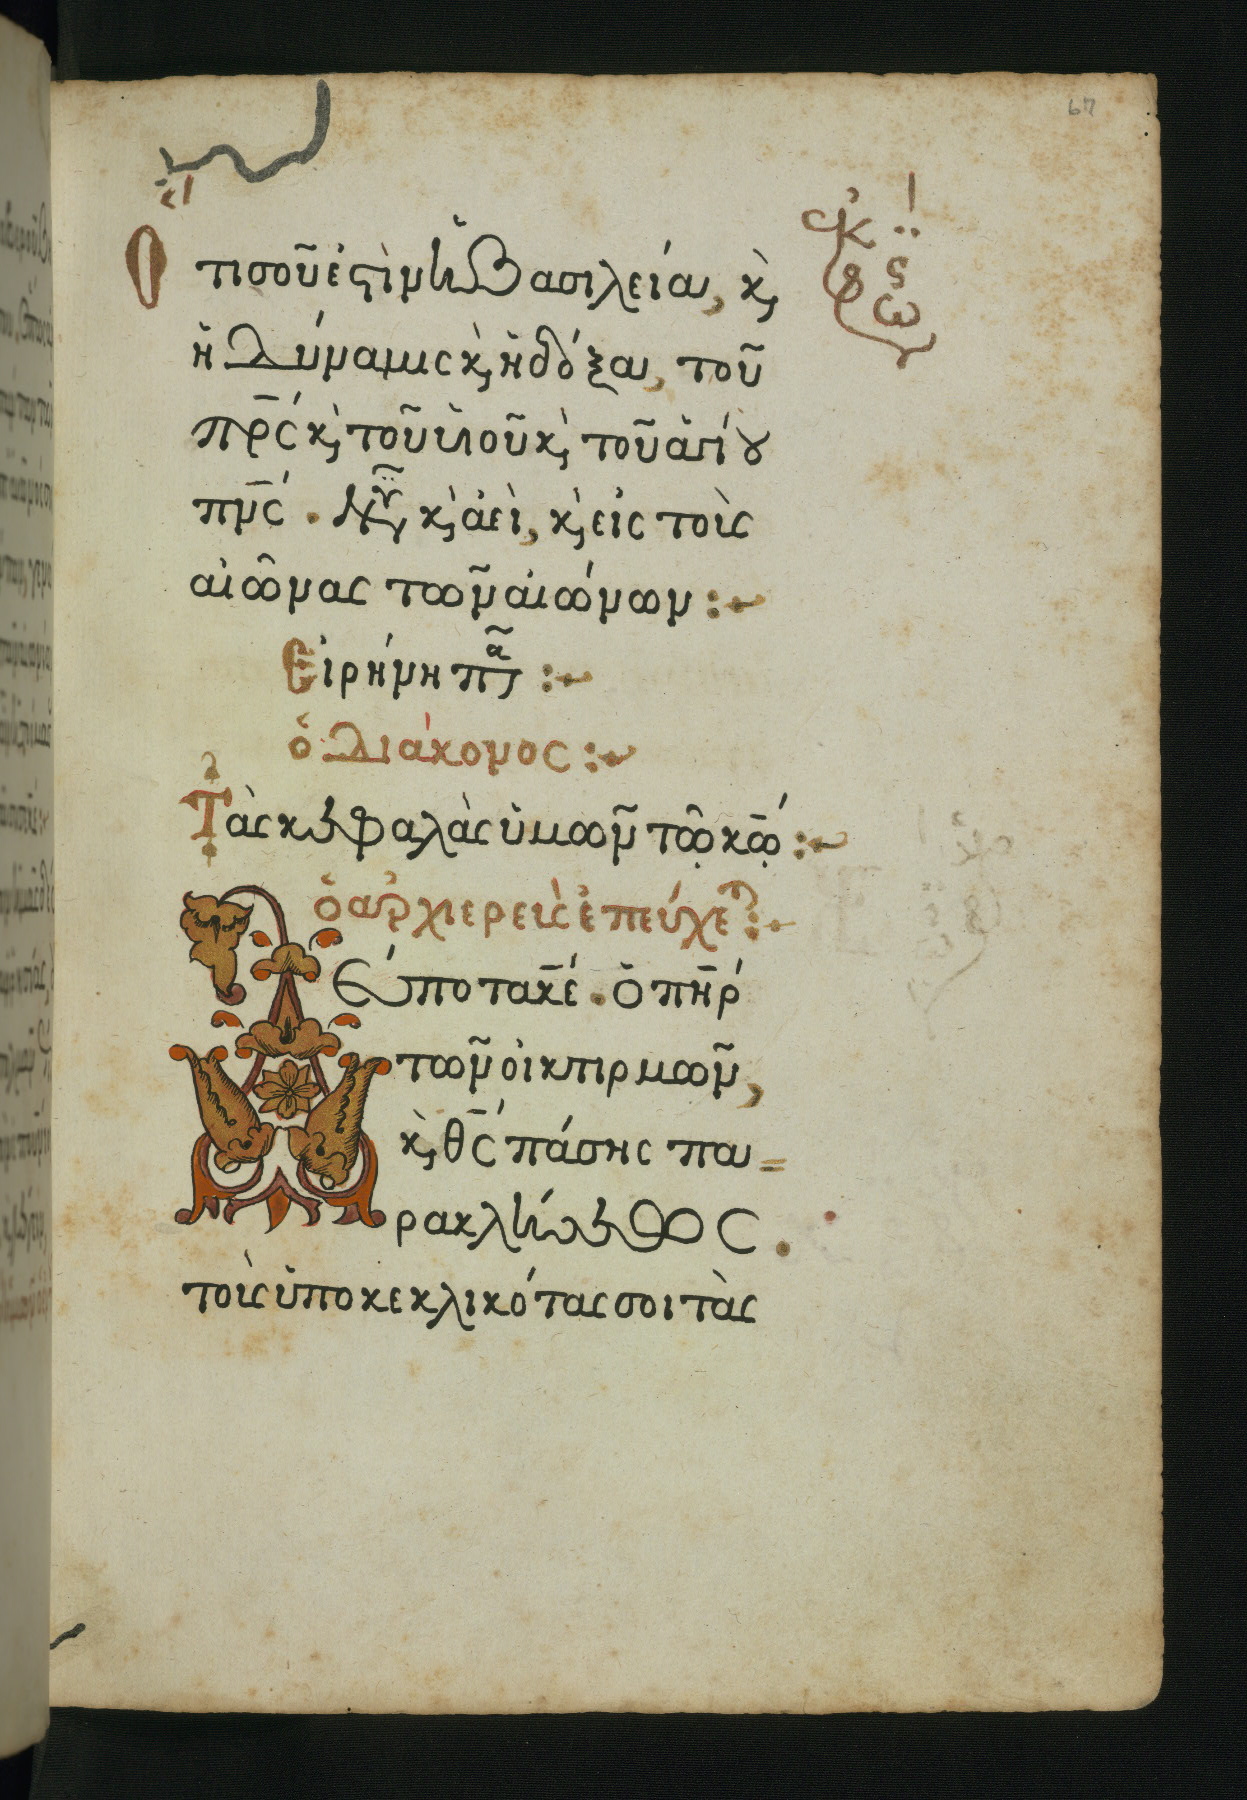 67
Ὅτι σοῦ ἐστὶν ἡ Βασιλεία, κ̀
ἡ Δύναμις κ̀ ἡ δόξα, τοῦ
πρ̅ς κ̀ τοῦ υἱοῦ κ̀ τοῦ ἁγίου
πν̅ς . Νῦν κ̀ ἀεὶ, κ̀ εἰς τοὺς
αἰῶνας τῶν αἰώνων :~
Εἰρήνη πᾶσι :~
ὁ Διάκονος :~
Τὰς κεφαλὰς ὑμῶν τῷ κῷ :~
ὁ αρχιερεὺς ἐπεύχεται :~
Δέσποτα κε̅ . ὁ πη̅ρ
τῶν οἰκτιρμῶν,
κ̀ θς̅ πάσης πα=
ρακλήσεως .
τοὺς ὑποκεκλικότας σοι τὰς